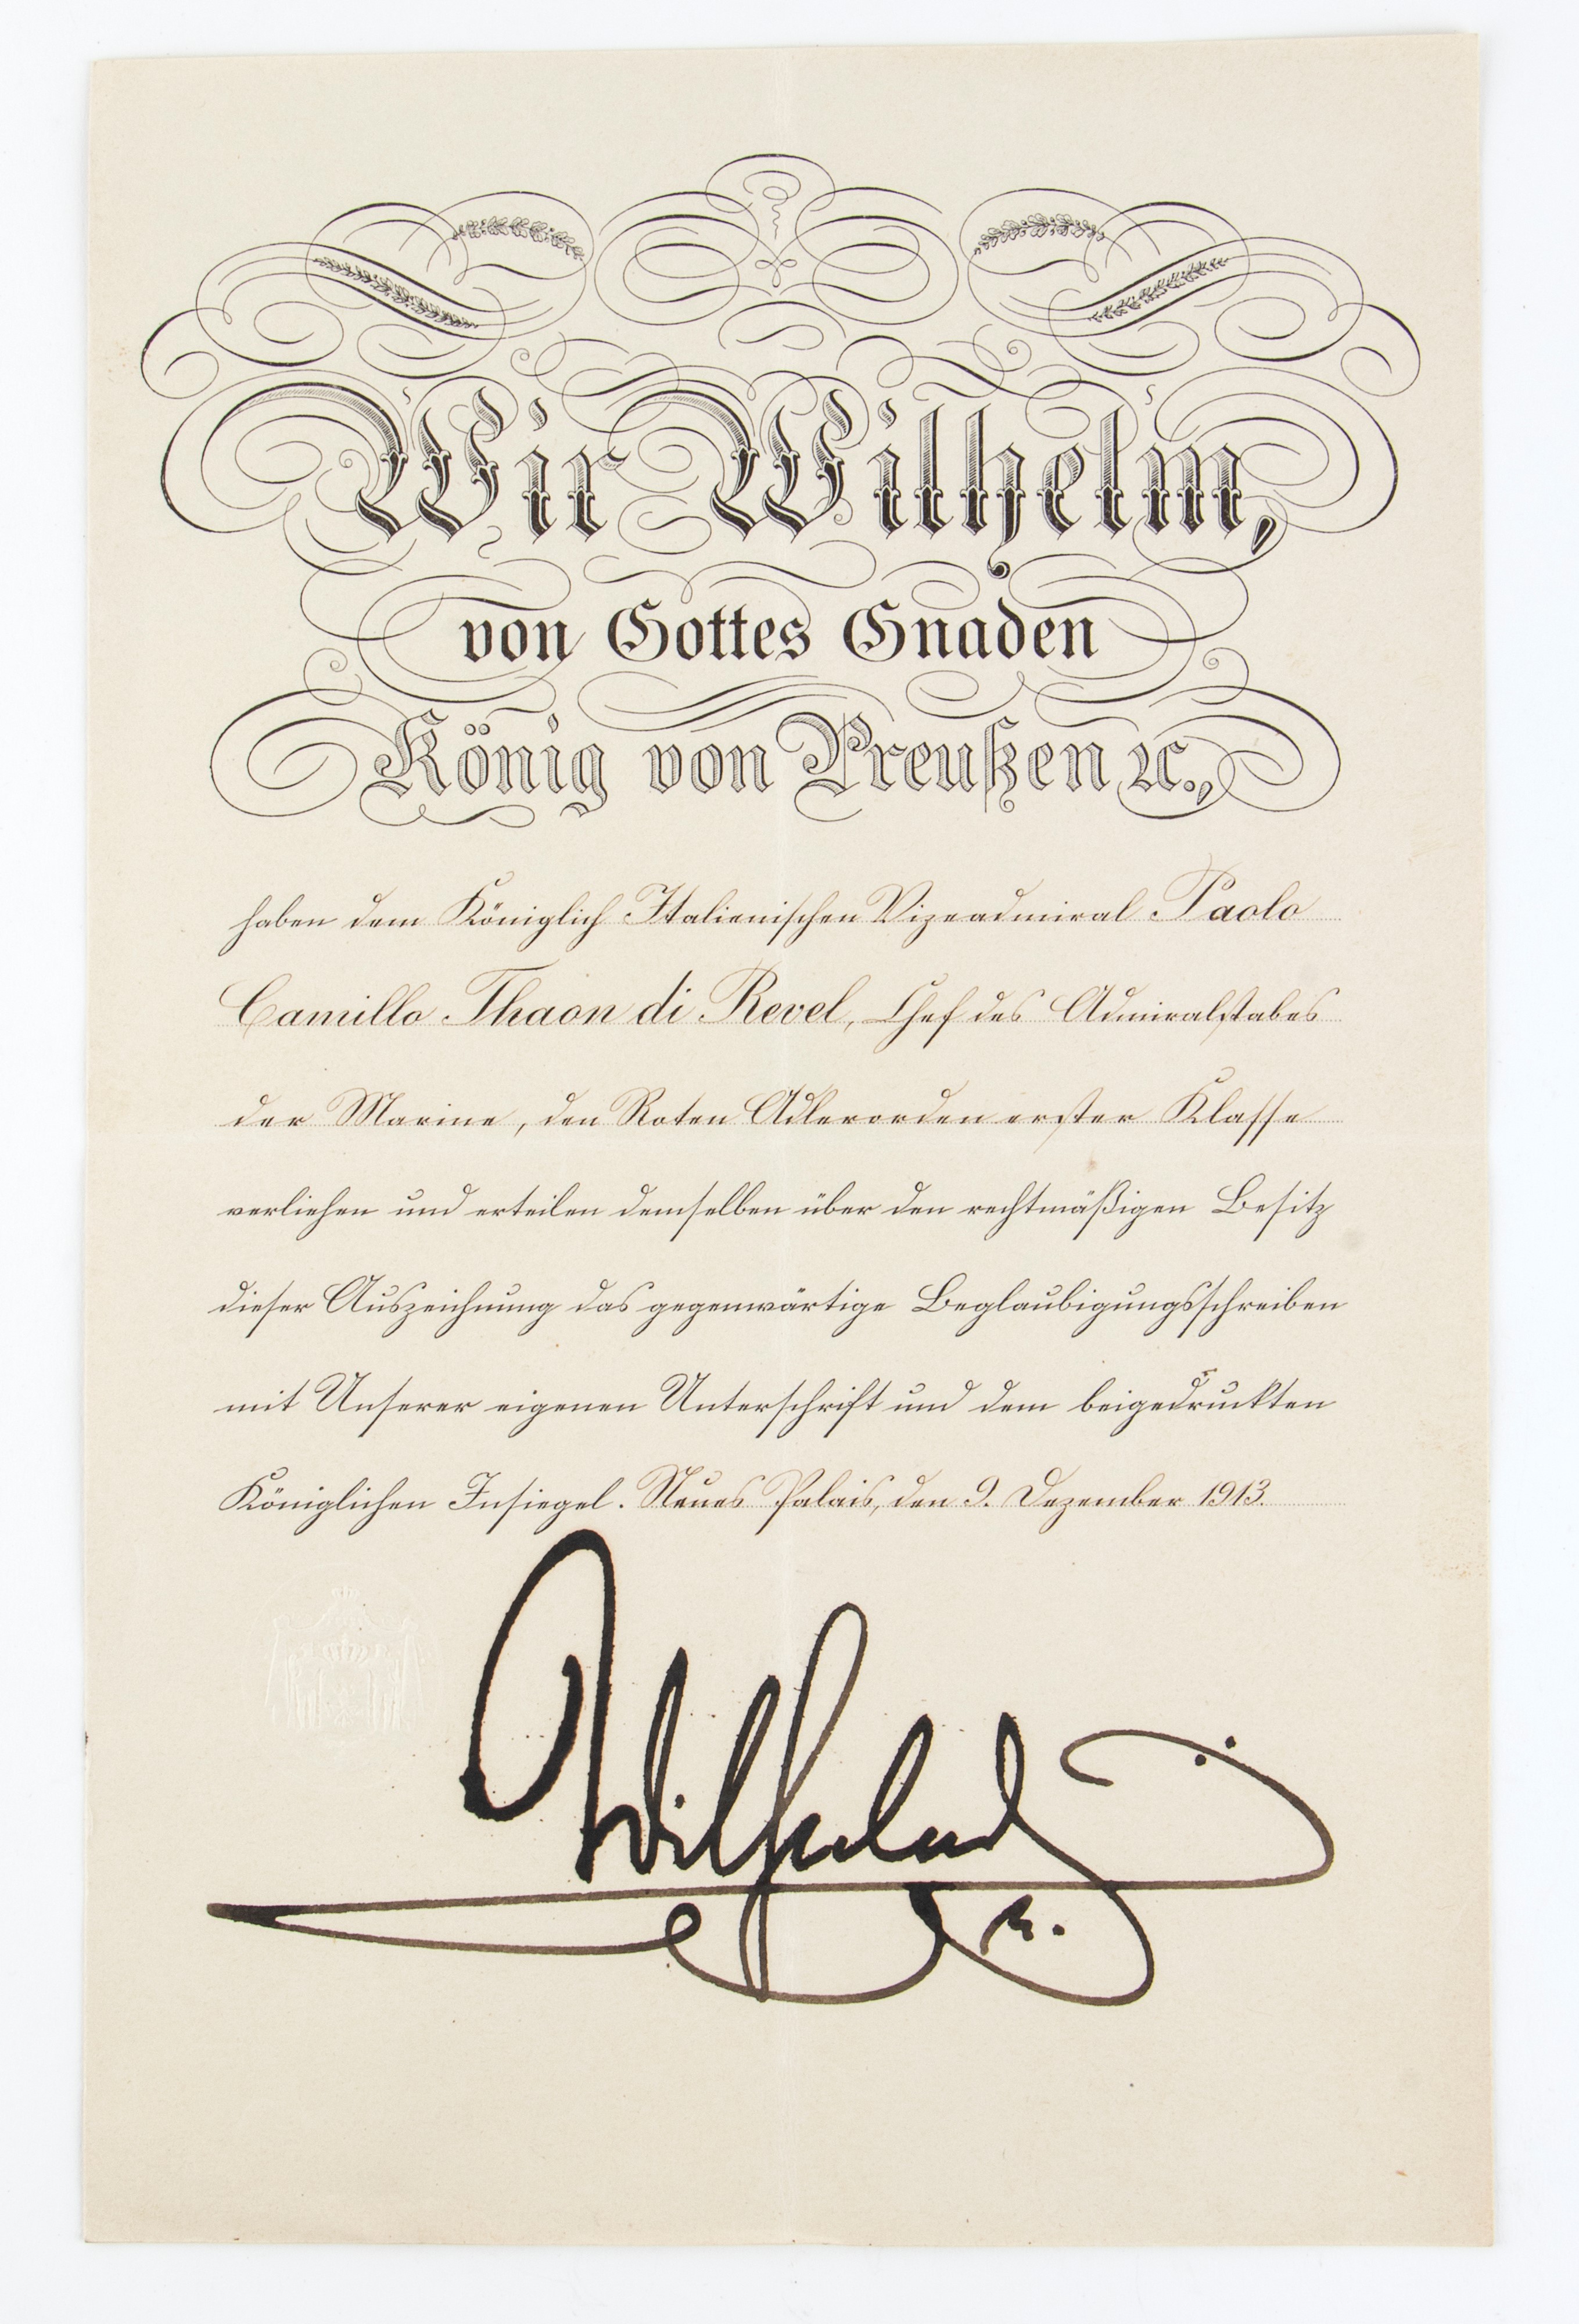 Wir Wilhelm,
von Gottes Gnaden
König von Preußen ꝛc.,
haben dem Königlich Italienischen Vizeadmiral Paolo
Camillo Thaon di Revel, Chef des Admiralstabes
der Marine, den Roten Adlerorden erster Klasse
verliehen und erteilen demselben über den rechtmäßigen Besitz
dieser Auszeichnung das gegenwärtige Beglaubigungsschreiben
mit Unserer eigenen Unterschrift und dem beigedruckten
Königlichen Insiegel. Neues Palais, den 9. Dezember 1913.
Wilhelm
R.